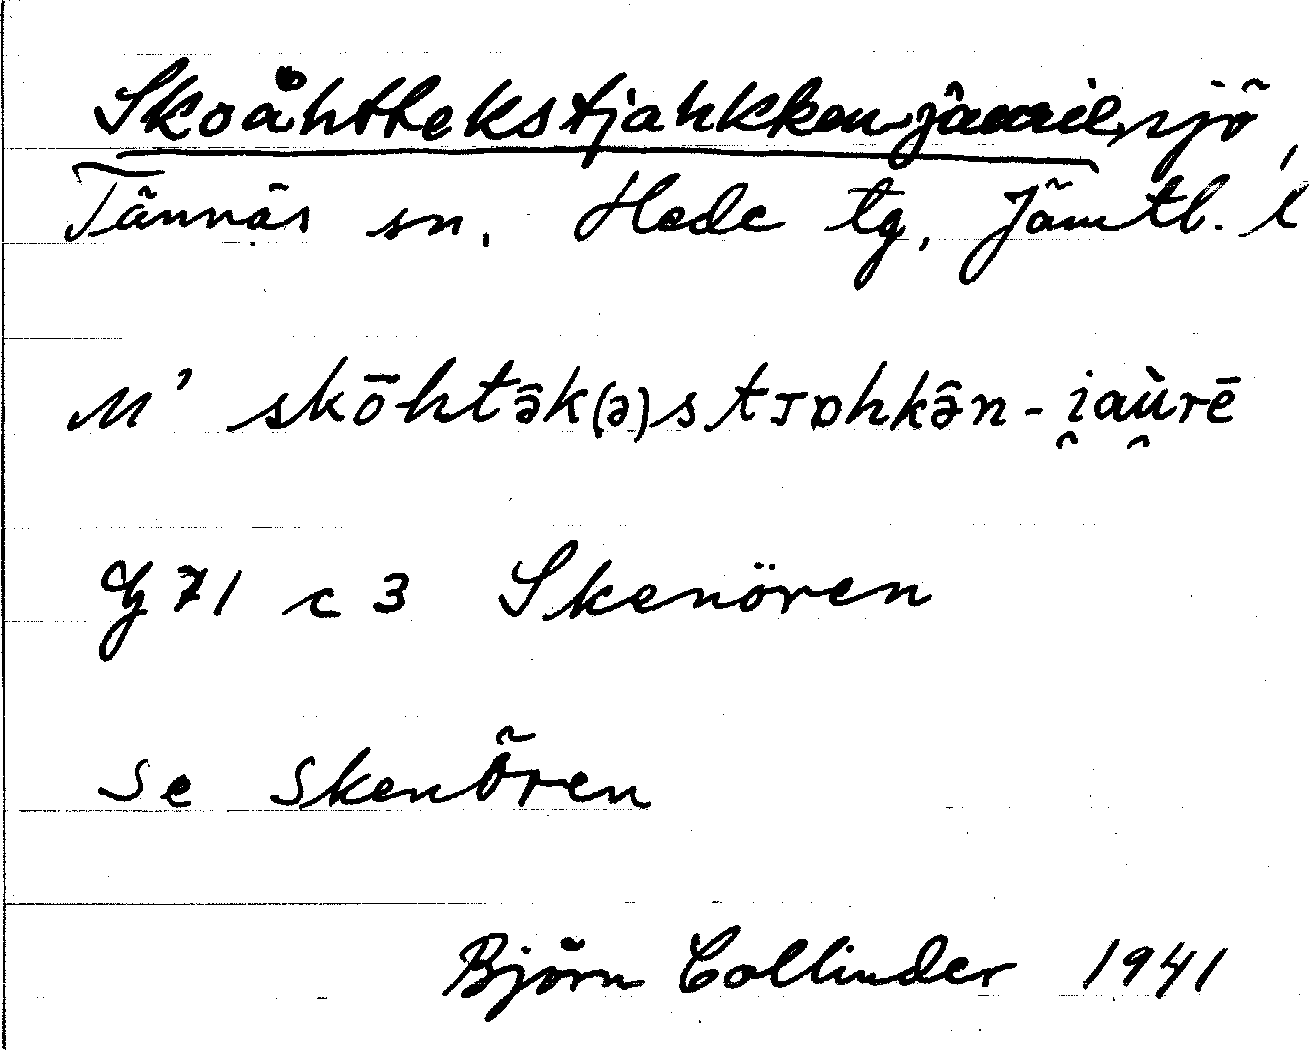 Skoåhttekstjahkken jaavrie, sjö,
Tännäs sn. Hede tg, Jämtl. l
M' skōhtə̂k(ə)stᴊɒhkə̂n-i̯aù̯rē
G 71 c 3 Skenören
Se Skenören
Björn Collinder 1941